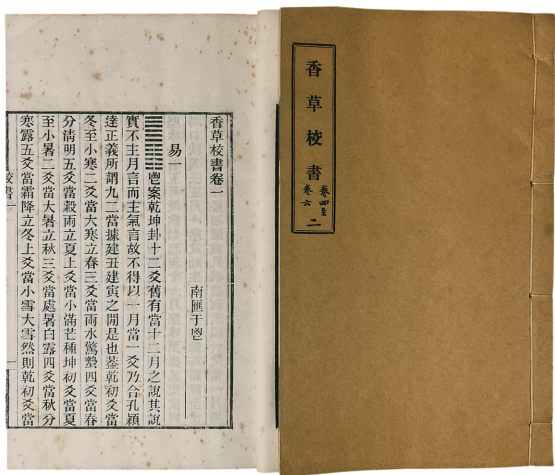 香草校書
卷四至
卷六
二
香草校書卷一
南匯于鬯
易一
䷀䷁鬯案乾坤卦十二爻舊有當十二月之說其說
實不而主月言而主氣言故不得以一月當一爻乃合孔穎
達正義所謂九二當據建丑建寅之間是也葢乾初爻當
冬至小寒二爻當大寒立春三爻當雨水驚蟄四爻當春
分清明五爻當穀雨立夏上爻當小滿芒種坤初爻當夏
至小暑二爻當大暑立秋三爻當處暑白露四爻當秋分
寒露五爻當霜降立冬上爻當小雪大雪然則乾初爻當
校書一